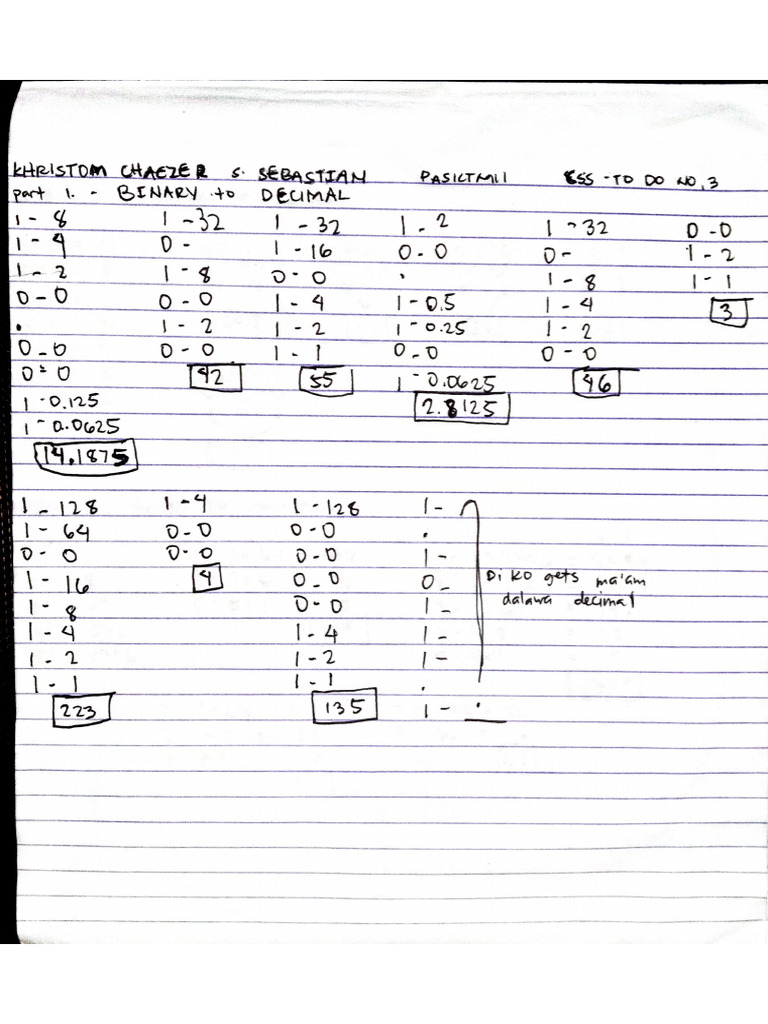 KHRISTOM CHAEZER S. SEBASTIAN PASILTM11 ESS -TO DO NO, 3
part 1. - BINARY to DECIMAL
1 - 8 1 - 32 1 - 32 1 - 2 1 - 32 0 - 0
1 - 4 0 - 1 - 16 0 - 0 0 - 1 - 2
1 - 2 1 - 8 0 - 0 . 1 - 8 1 - 1
0 - 0 0 - 0 1 - 4 1 - 0.5 1 - 4 3
. 1 - 2 1 - 2 1 - 0.25 1 - 2
0 - 0 0 - 0 1 - 1 0 - 0 0 - 0
0 - 0 42 55 1 - 0.0625 46
1 - 0.125 2.8125
1 - 0.0625
14.1875
1 - 128 1 - 4 1 - 128 1 -
1 - 64 0 - 0 0 - 0 .
0 - 0 0 - 0 0 - 0 1 -
1 - 16 4 0 - 0 0 - Di ko gets ma'am
1 - 8 0 - 0 1 - dalawa decimal
1 - 4 1 - 4 1 -
1 - 2 1 - 2 1 -
1 - 1 1 - 1 .
223 135 1 - .